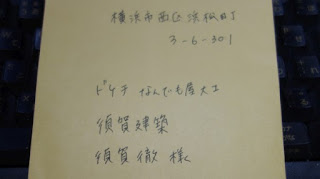 横浜市西区浜松町
3-6-301
ドケチ なんでも屋大工
須賀建築
須賀徹 様